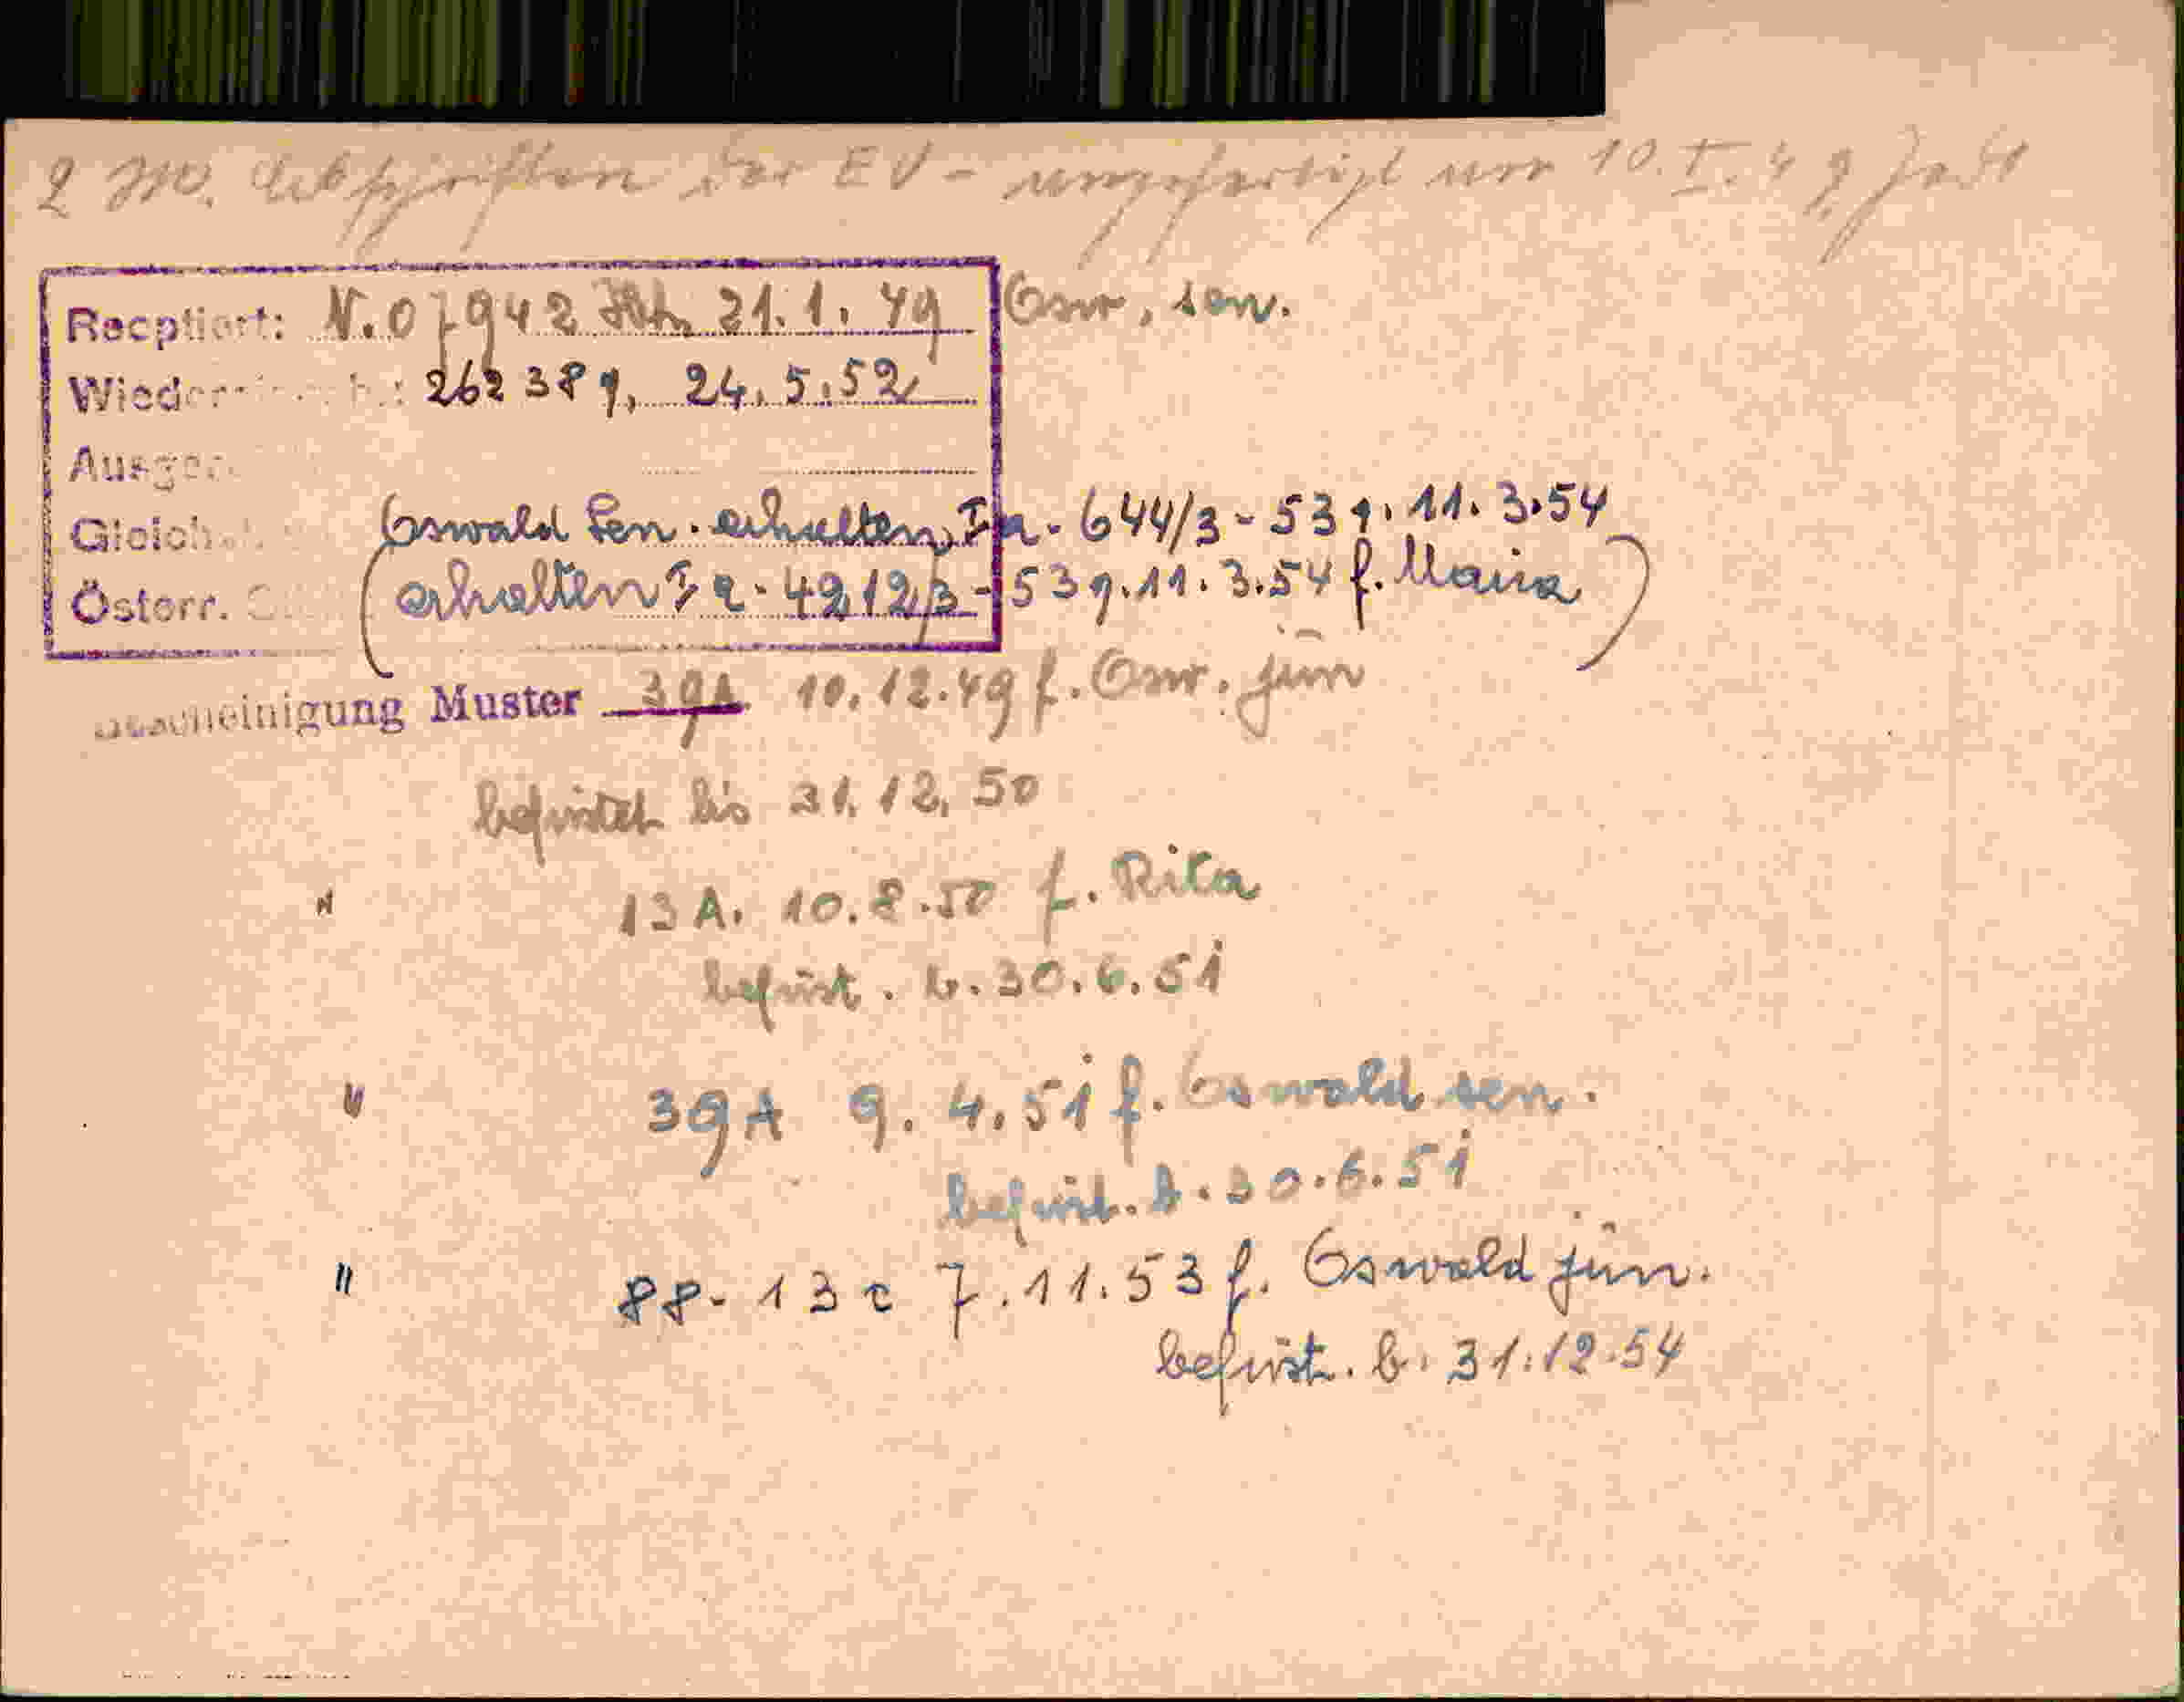 2 Abschriften der EV - 10.I.49
Recptiert: N. 07942 21.1.49 Osw. sen.
Wieder 262389, 24.5.52
Ausge
Gleich Oswald Sen. erhalten Ia-644/3-539. 11.3.54
Österr. (erhalten Ia-4212/3-539. 11.3.54 f. Maria)
Bescheinigung Muster 39A 10.12.49 f. Osw. jun
befristet bis 31.12.50
" 13A. 10.8.50 f. Rita
befrist. b. 30.6.51
" 39A 9.4.51 f. Oswald sen.
befrist. b. 30.6.51
" 88-13c 7.11.53 f. Oswald jun.
befrist. b. 31.12.54